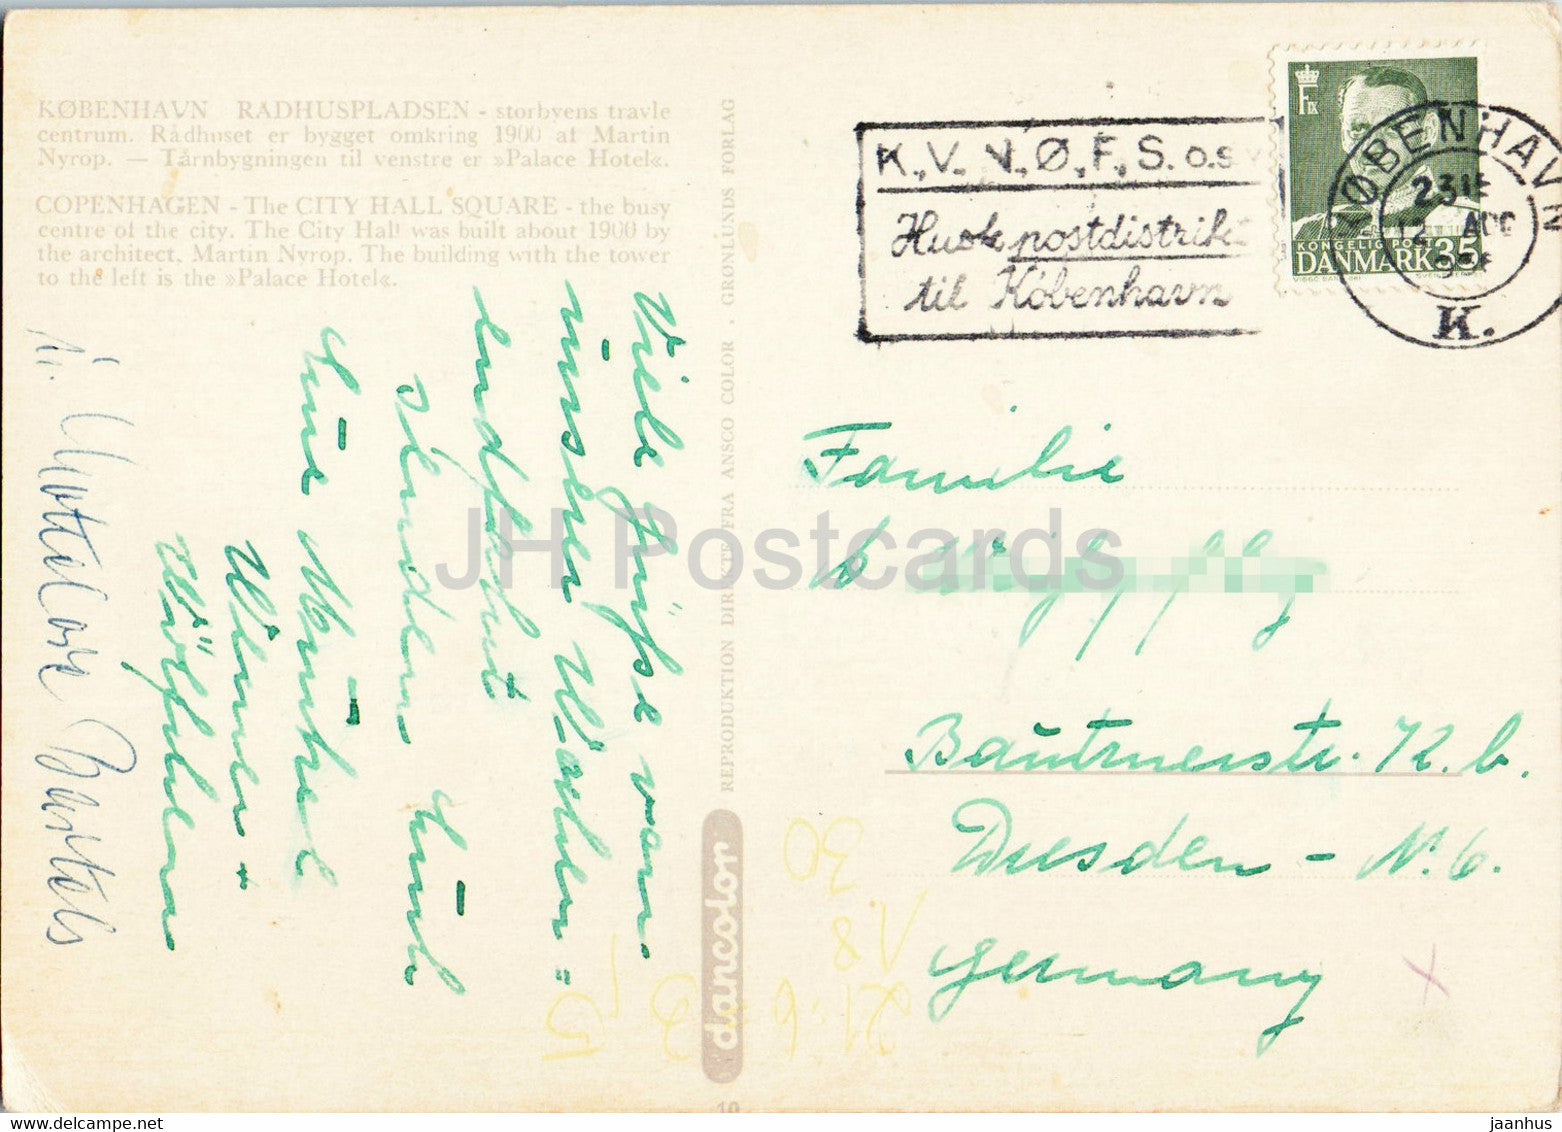 KØBENHAVN RADHUSPLADSEN - storbyens travle
centrum. Rådhuset er bygget omkring 1900 af Martin
Nyrop. — Tårnbygningen til venstre er »Palace Hotel«.
COPENHAGEN - The CITY HALL SQUARE - the busy
centre of the city. The City Hall was built about 1900 by
the architect, Martin Nyrop. The building with the tower
to the left is the »Palace Hotel«.
Viele Grüße von
unserer Wochen=
endfahrt
senden Euch
Eure
M.
Bartels
REPRODUKTION DIREKTE FRA ANSCO COLOR . GRØNLUNDS FORLAG
dancolor
10
K., V., N., Ø., F., S. o.s.v
Husk postdistrikt
til København
KØBENHAVN
12 AUG
K.
F IX
KONGELIG POST
DANMARK 35
Familie
Bautznerstr. K. b.
Dresden - N. 6.
Germany
30
18
21.6
JH Postcards
www.delcampe.net
jaanhus